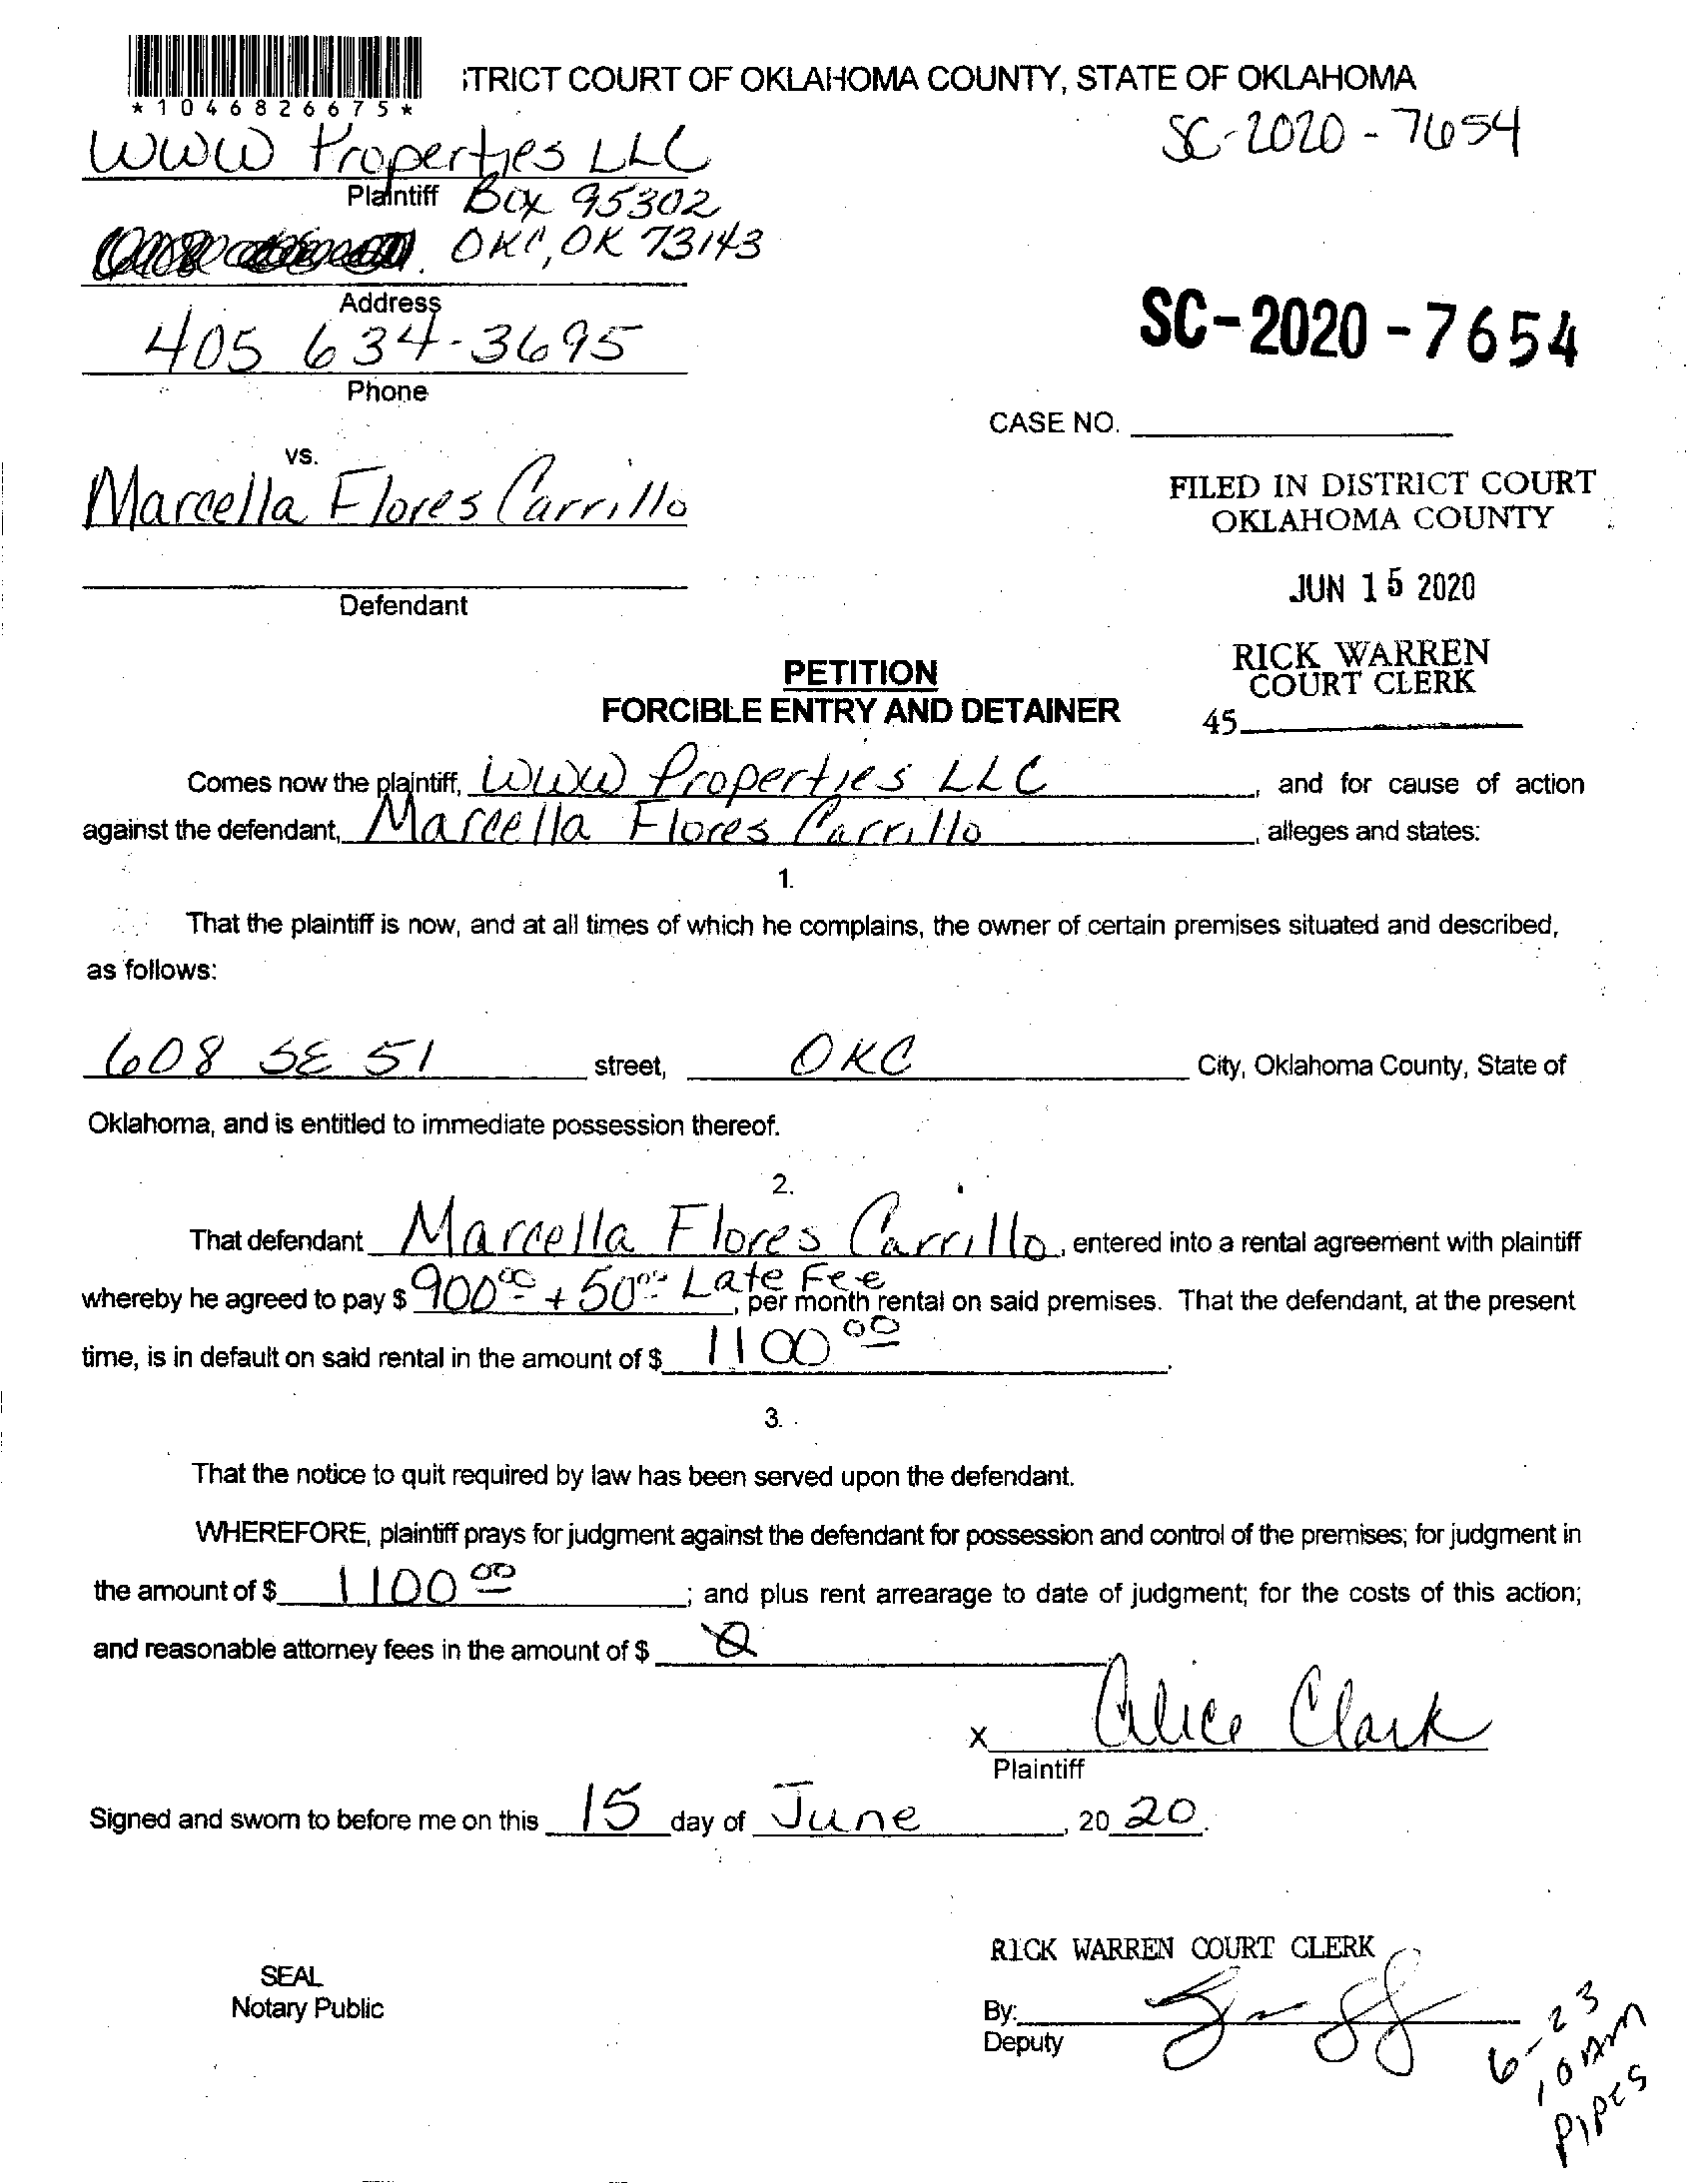 iTRICT COURT OF OKLAHOMA COUNTY, STATE OF OKLAHOMA
*1046826675*
SC-2020-7654
WWW Properties LLC
Plaintiff Box 95302
OKC, OK 73143
Address
405 634-3695
Phone
SC-2020-7654
CASE NO.
vs.
Marcella Flores Carrillo
Defendant
FILED IN DISTRICT COURT
OKLAHOMA COUNTY
JUN 15 2020
RICK WARREN
COURT CLERK
45
PETITION
FORCIBLE ENTRY AND DETAINER
Comes now the plaintiff, WWW Properties LLC, and for cause of action
against the defendant, Marcella Flores Carrillo, alleges and states:
1.
That the plaintiff is now, and at all times of which he complains, the owner of certain premises situated and described,
as follows:
608 SE 51 street, OKC City, Oklahoma County, State of
Oklahoma, and is entitled to immediate possession thereof.
2.
That defendant Marcella Flores Carrillo, entered into a rental agreement with plaintiff
whereby he agreed to pay $ 900.00 + 50.00 Late Fee, per month rental on said premises. That the defendant, at the present
time, is in default on said rental in the amount of $ 1100 00.
3.
That the notice to quit required by law has been served upon the defendant.
WHEREFORE, plaintiff prays for judgment against the defendant for possession and control of the premises; for judgment in
the amount of $ 1100 00; and plus rent arrearage to date of judgment; for the costs of this action;
and reasonable attorney fees in the amount of $ 0
x Alice Clark
Plaintiff
Signed and sworn to before me on this 15 day of June, 20 20.
RICK WARREN COURT CLERK
SEAL
Notary Public
By:
Deputy
6-23
10 AM
PIPES